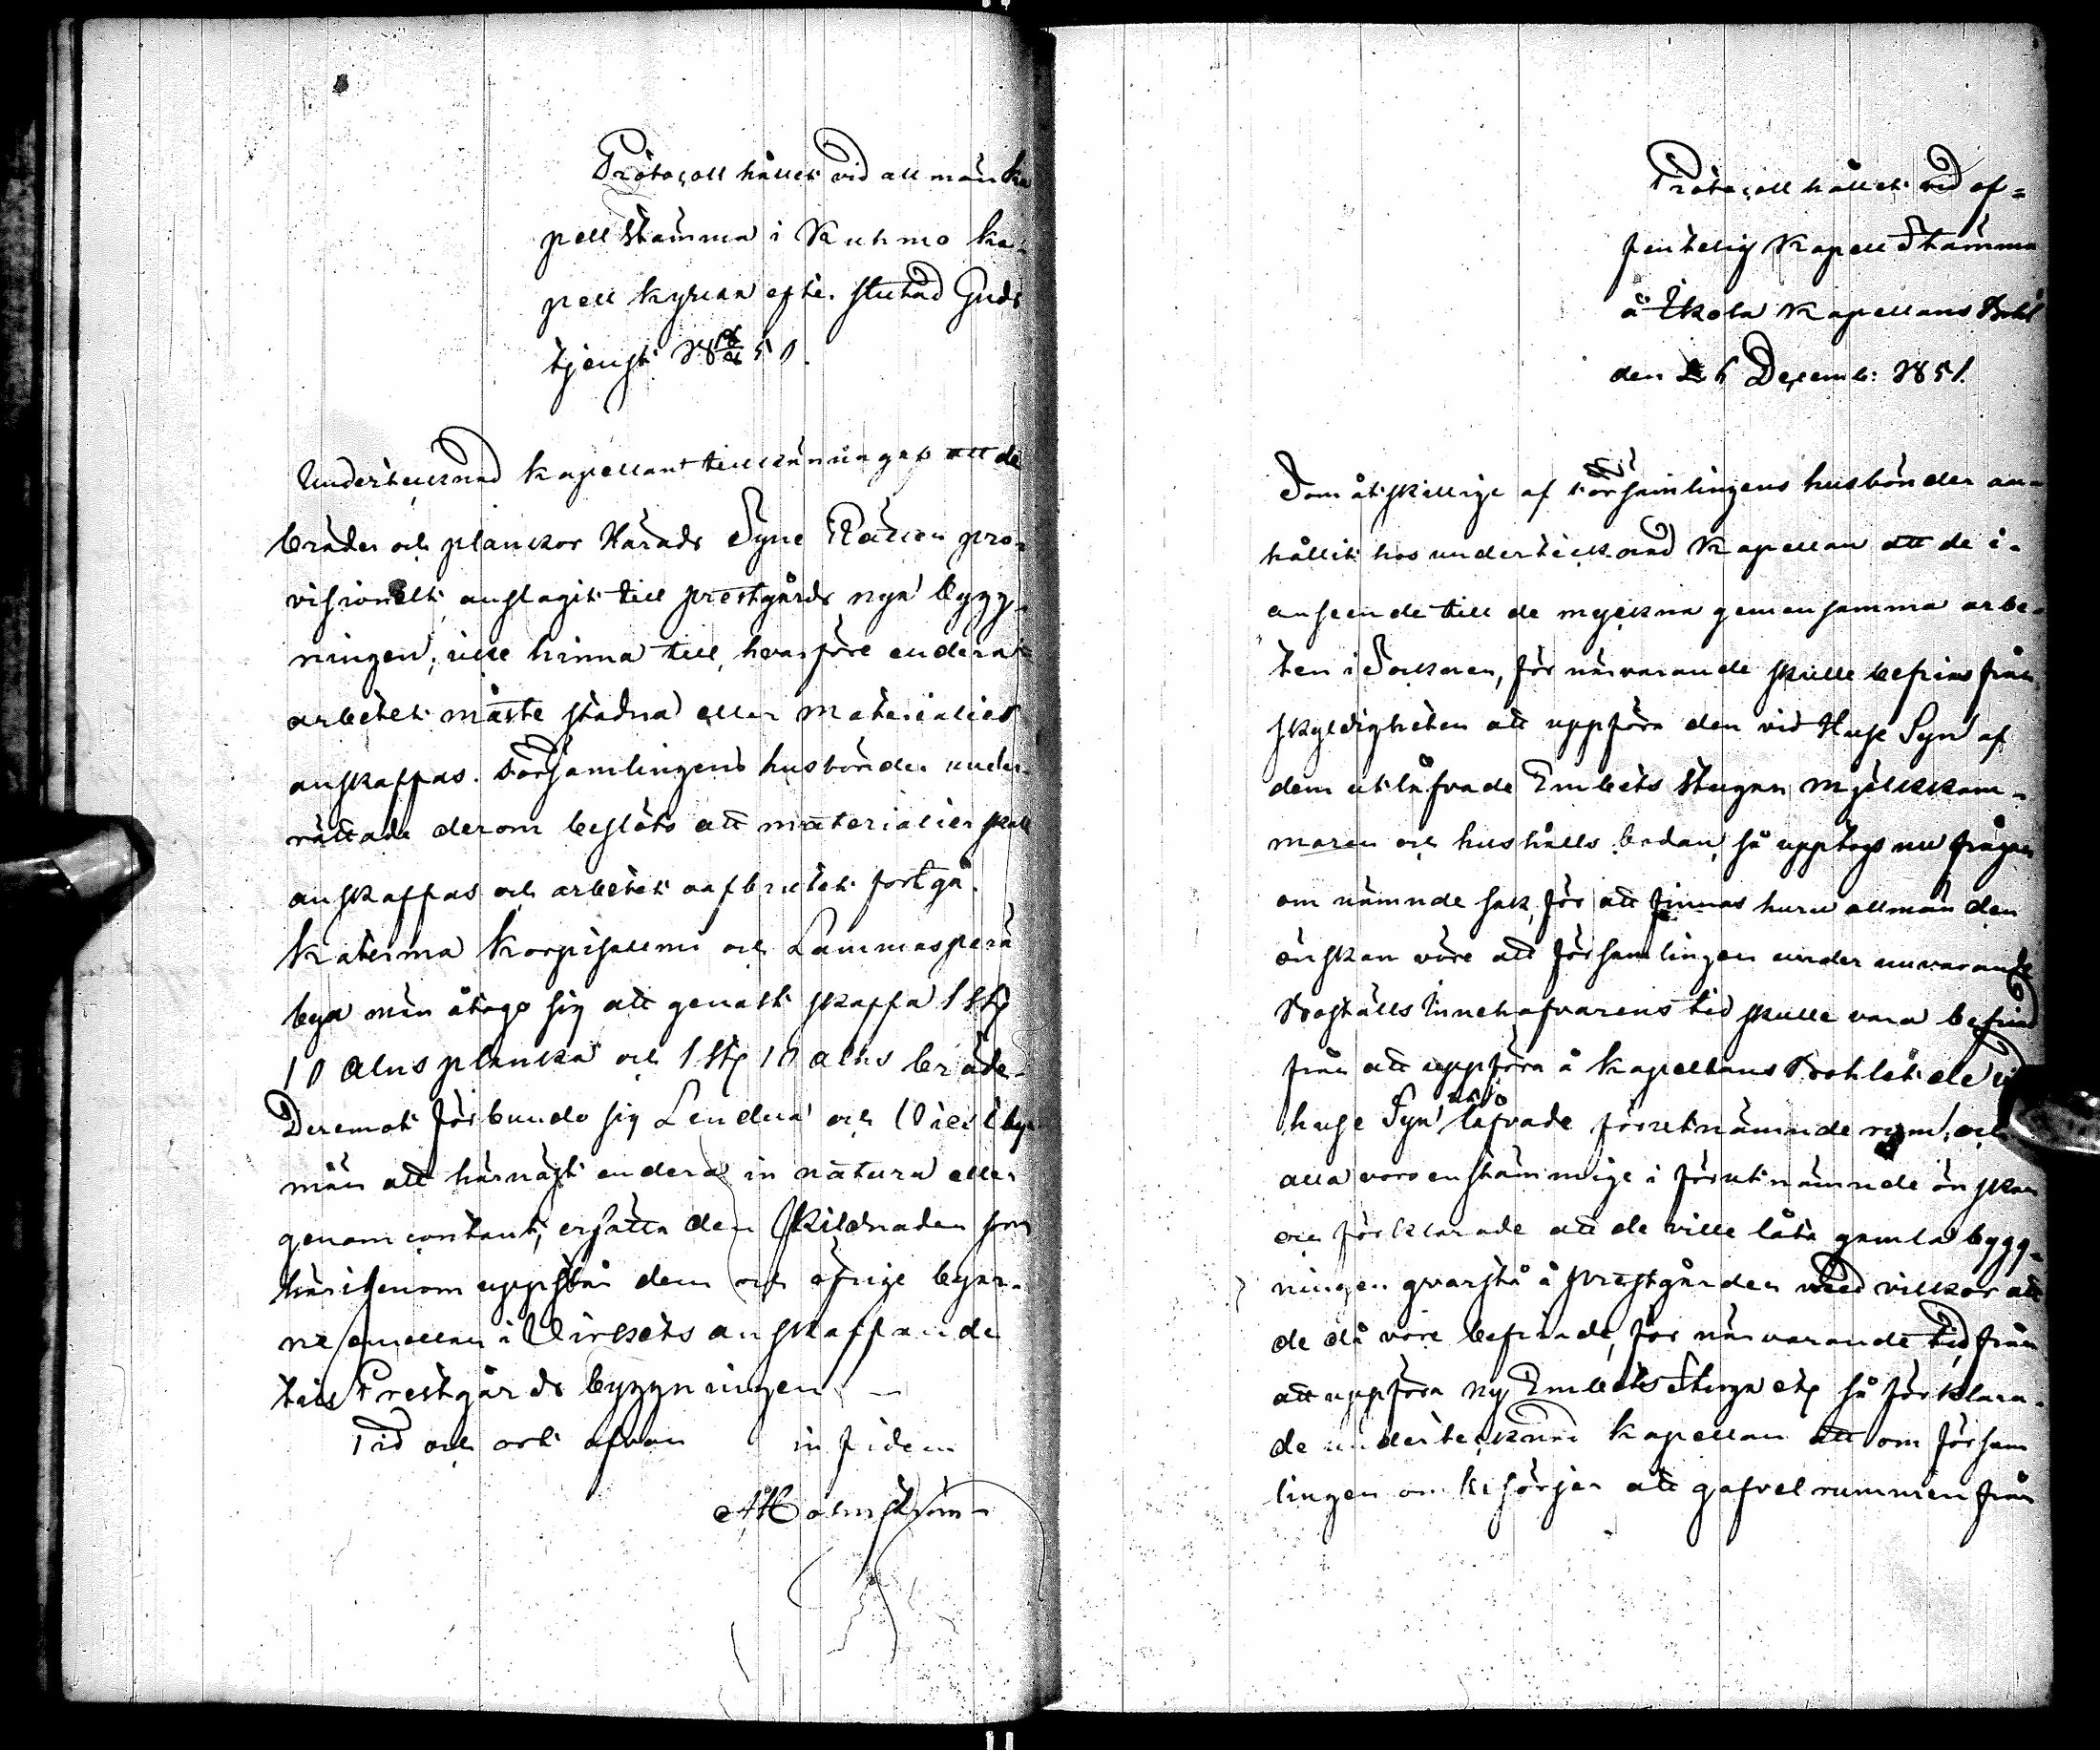 Protocoll hållet vid allmän ka
pell stämma i Kuhmo ka-
pell kyrka efter slutad Guds
tjenst 18 51.
Undertecknad Kapellan tillkännagaf att de
bräder och plankor Härads Syne Rätten pro-
visionelt anslagit till prestgårds nya bygg-
ningen, icke hinna till, hvarföre endera
arbetet måste stadna eller materialier
anskaffas. Församlingens husbönder under-
rättade derom beslöto att materialier skall
anskaffas och arbetet oafbrutet fortgå.
Katerma Korpisalmi och Lammasperä
bya män åtogo sig att genast skaffa 1 st
10 alns planka och 1 st 10 alns bräde.
Deremot förbundo sig Lendua och Vieri bya
män att härnäst endera in natura eller
genom contant, ersätta den skildnaden som
härigenom uppstår dem och öfrige byar-
ne emellan i Virkets anskaffande
till Prestgårds byggningen —
Tid och ort ofvan in fidem
A H olmström
Protocoll hållet vid of-
fentelig Kapell Stämma
å Ekola Kapellans Bohl
den 26 Decemb: 1851.
Som åtskillige af Församlingens husbönder an-
hållit hos undertecknad Kapellan att de i
anseende till de myckna gemensamma arbe-
ten i Socknen, för närvarande skulle befrias från
skyldigheten att uppföra den vid Huse Syn af
dem utlåfvade Embets stugan mjölkkam-
maren och hushålls bodan, så upptogs nu frågan
om nämnde sak, för att finnas huru allmän den
önskan vore att församlingen under nuvarande
Boställs Innehafvarens tid skulle vara befriad
från att uppföra å Kapellans Bohlet de vid
huse Syn låfvade förutnämnde rum, och
alla voro enstämmige i förutnämnde önskan
och förklarade att de ville låta gamla bygg-
ningen qvarstå å prestgården med vilkor att
de då vore befriade, för närvarande tid från
att uppföra ny Embets Stuga etc så förklara-
de undertecknad Kapellan att om försam
lingen om besörjer att gafvel rummen från